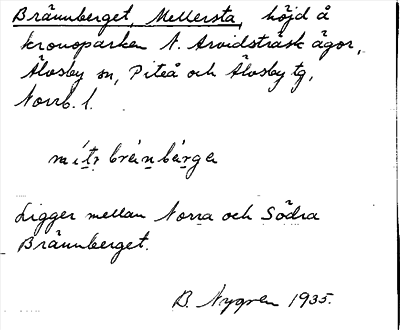 Brännberget, Mellersta, höjd å
kronoparken N. Arvidsträsk ägor,
Älvsby sn, Piteå och Älvsby tg,
Norrb. l.
mítɪ bränbärga
Ligger mellan Norra och Södra
Brännberget.
B. Nygren 1935.